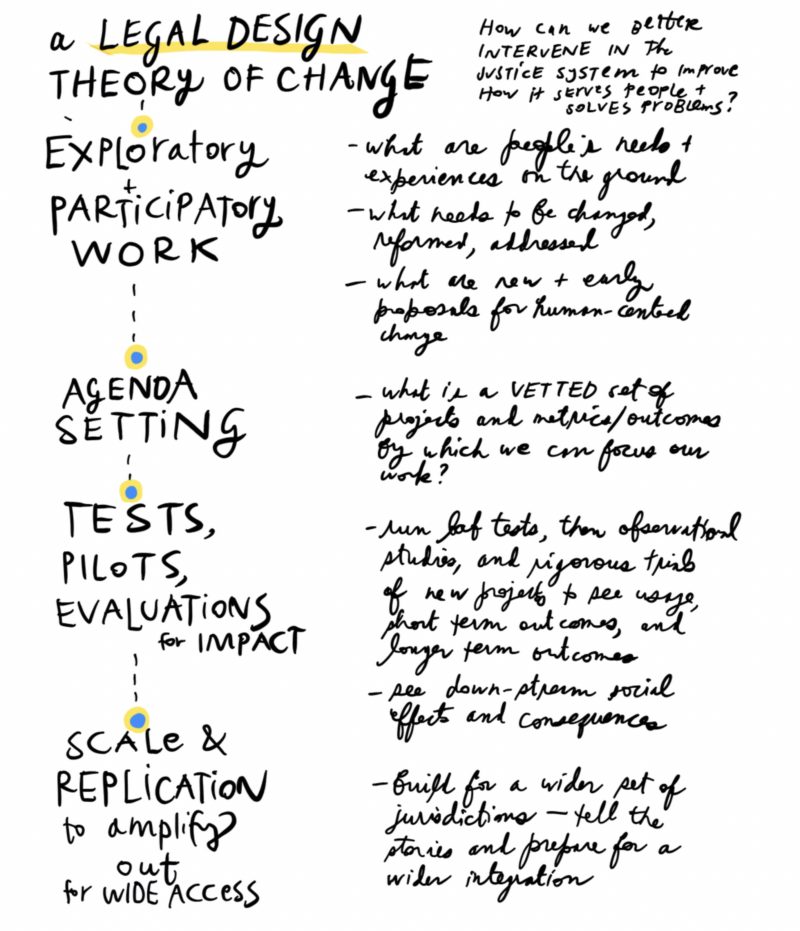 a LEGAL DESIGN
THEORY OF CHANGE
How can we Better
INTERVENE IN the
JUSTICE SYSTEM to Improve
How it serves people +
SOLVES PROBLEMS?
EXPLORatory
+
PARTiCiPATORY
WORK
- what are people's needs +
experiences on the ground
- what needs to be changed,
reformed, addressed
- what are new + early
proposals for human-centred
change
AGENDA
SETTiNG
- what is a VETTED set of
projects and metrics/outcomes
by which we can focus our
work?
TESTS,
PILOTS,
EVALUATiONS
for IMPACT
- run lab tests, then observational
studies, and rigorous trials
of new projects to see usage,
short term outcomes, and
longer term outcomes
- see down-stream social
effects and consequences
SCALe &
REPLiCATION
to amplify
out
for WIDE ACCESS
- built for a wider set of
jurisdictions - tell the
stories and prepare for a
wider integration